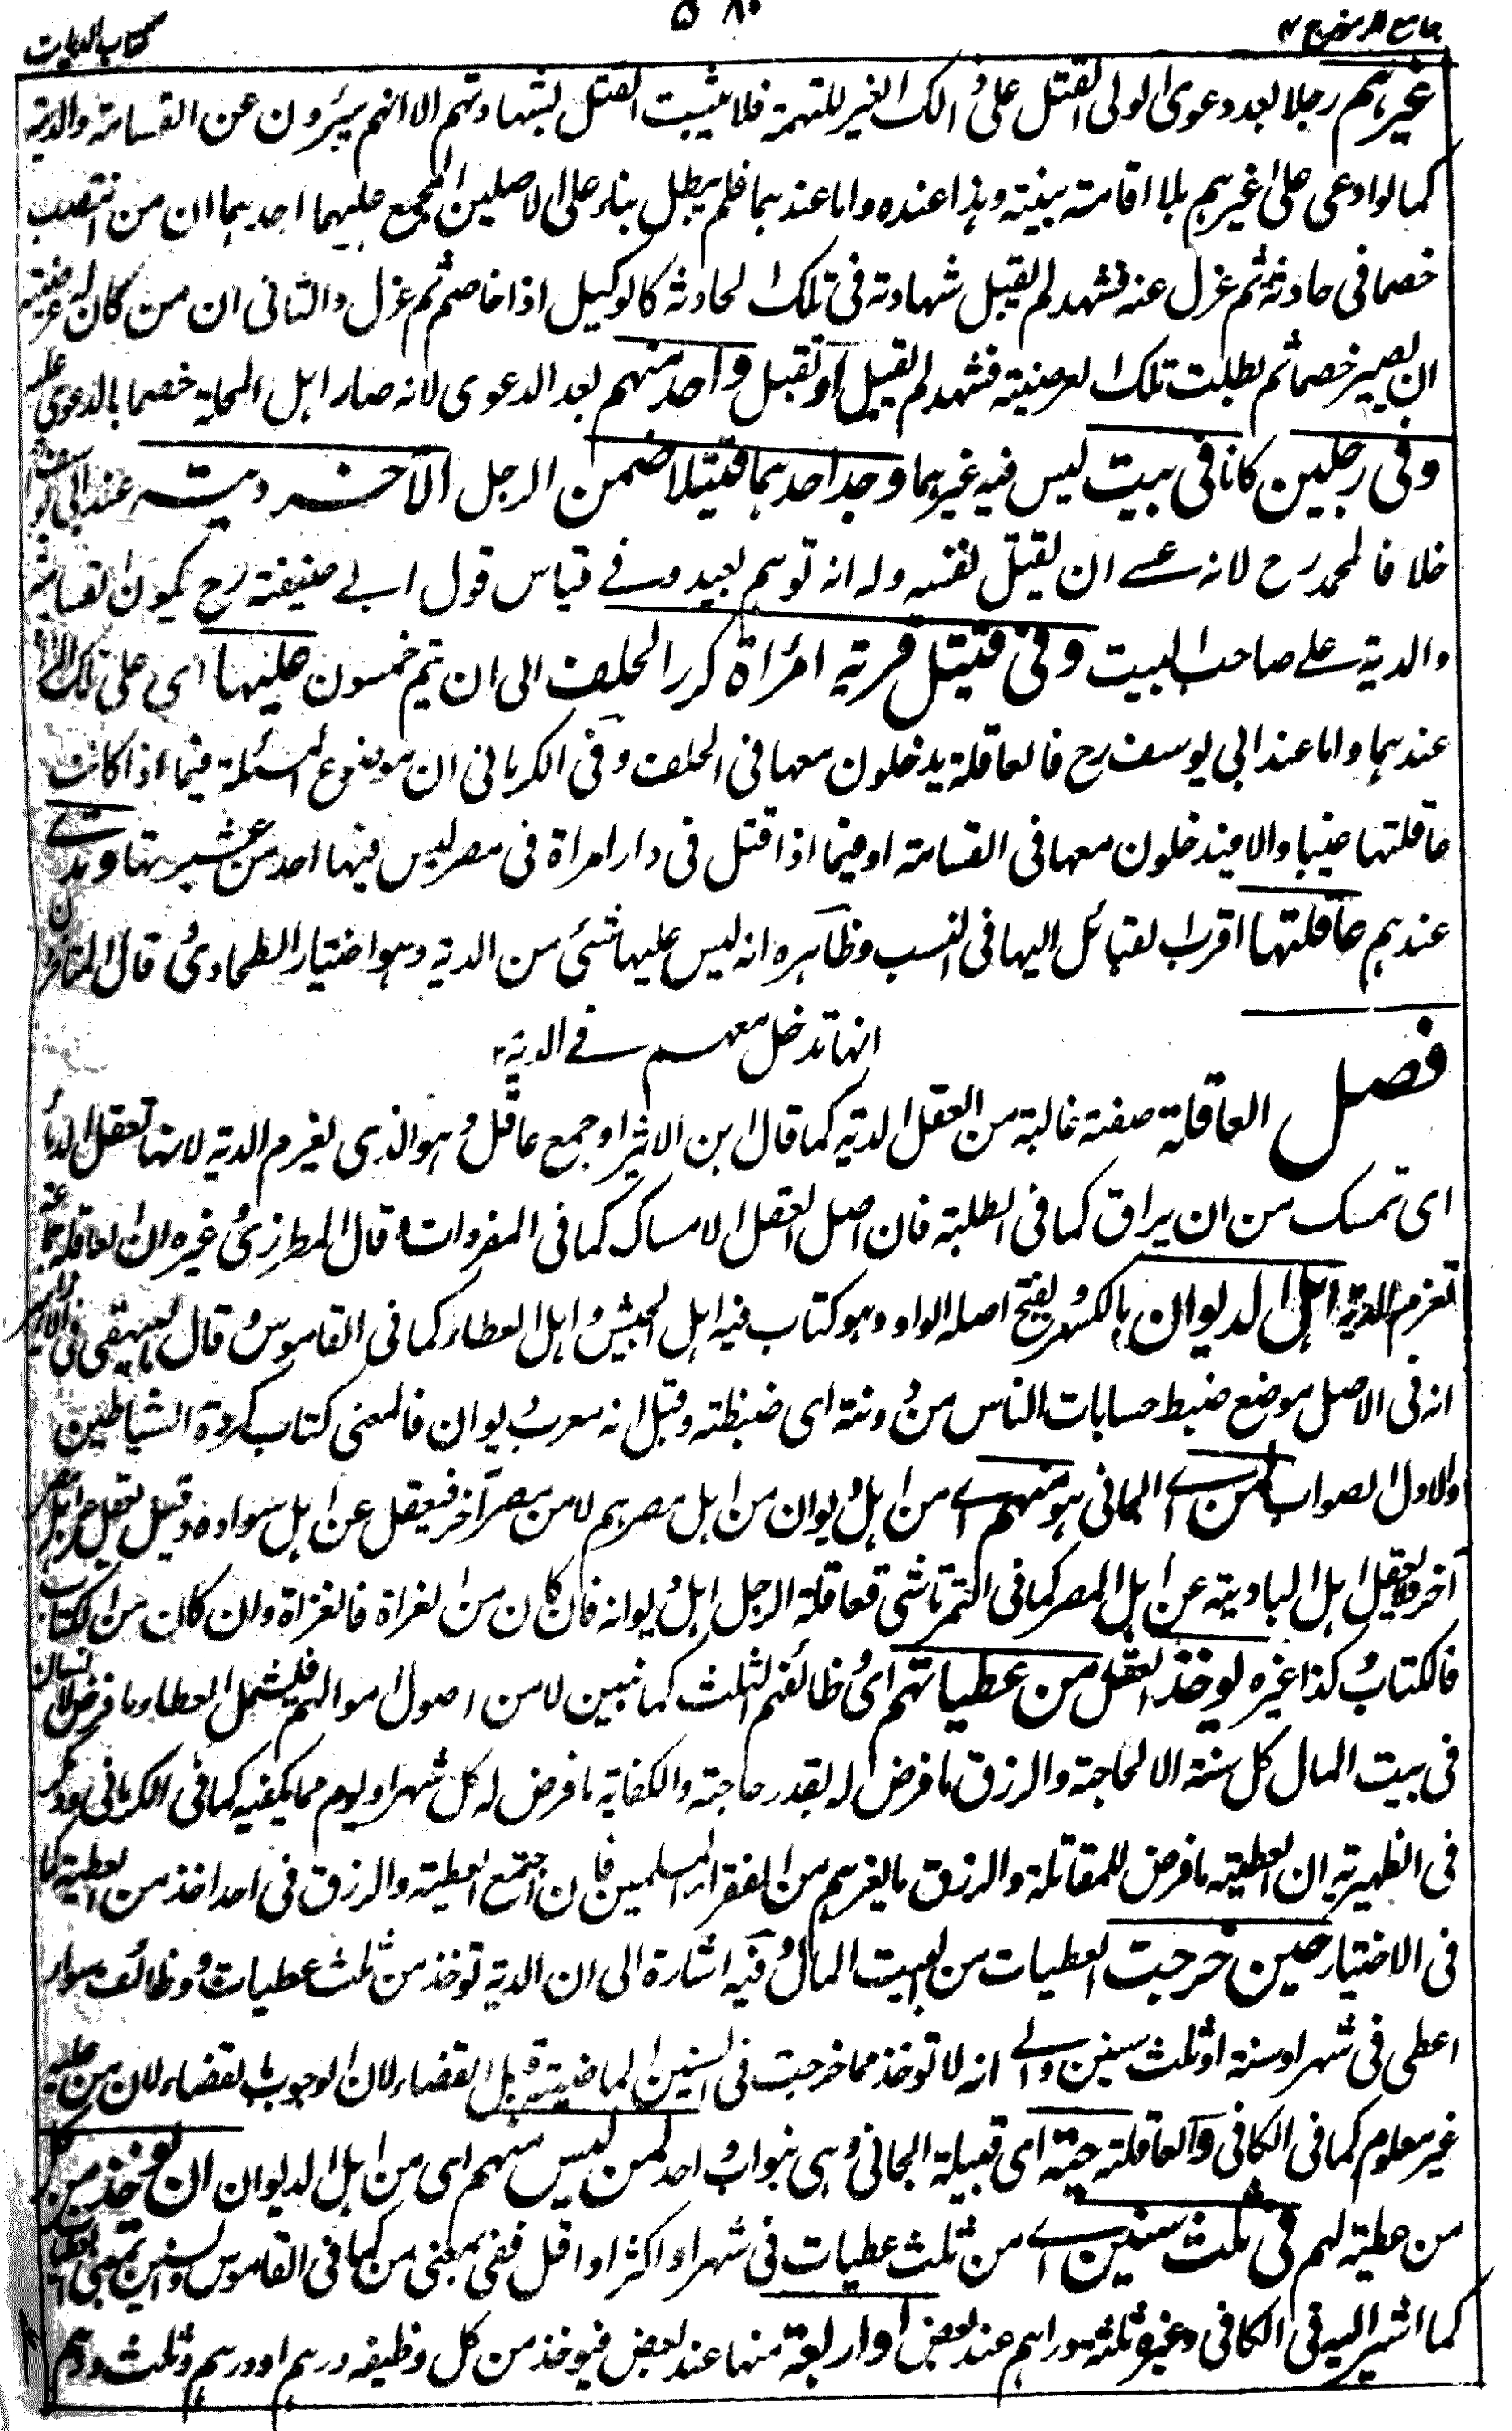 جامع الرموز ج ٢
٥٨٠
كتاب الديات
غيرهم رجلا بعد دعوى الولى القتل على ذلك الغير للتهمة فلا يثبت القتل بشهادتهم الا انهم يبرؤن عن القسامة والدية
كما لو ادعى على غيرهم بلا اقامة بينة وهذا عنده واما عندهما فلم يبطل بناء على الاصلين المجمع عليهما احدهما ان من انتصب
خصما فى حادثة ثم عزل عنه فشهد لم يقبل شهادته فى تلك الحادثة كالوكيل اذا خاصم ثم عزل والثانى ان من كان له عرضية
ان يصير خصما ثم بطلت تلك العرضية فشهد لم يقبل او تقبل واحد منهم بعد الدعوى لانه صار اهل المحلة خصما بالدعوى عليه
وفى رجلين كانا فى بيت ليس فيه غيرهما وجد احدهما قتيلا ضمن الرجل الآخر ديته عند ابى يوسف
خلافا لمحمد رح لانه عسى ان يقتل نفسه وله انه توهم بعيد وفى قياس قول ابى حنيفة رح يكون القسامة
والدية على صاحب البيت وفى قتيل قرية امرأة كرر الحلف الى ان تم خمسون عليها اى على تلك المرأة
عندهما واما عند ابى يوسف رح فالعاقلة يدخلون معها فى الحلف وفى الكرمانى ان موضوع المسئلة فيما اذا كانت
عاقلتها غيبا والا فيدخلون معها فى القسامة او فيما اذا قتل فى دار امرأة فى مصر ليس فيها احد من عشيرتها وتدى
عندهم عاقلتها اقرب القبائل اليها فى النسب وظاهره انه ليس عليها شئ من الدية وهو اختيار الطحاوى قال المتاخرون
انها تدخل معهم فى الدية
فصل العاقلة صفة غالبة من العقل الدية كما قال ابن الاثير او جمع عاقل وهو الذى يغرم الدية لانها تعقل الدماء
اى تمسك من ان يراق كما فى الطلبة فان اصل العقل الامساك كما فى المفردات وقال المطرزى وغيره ان العاقلة جماعة
تغرم الدية اهل الديوان بالكسر ويفتح اصله الواو وهو كتاب فيه اهل الجيش واهل العطاء كما فى القاموس وقال البيهقى فى
انه فى الاصل موضع ضبط حسابات الناس من دونته اى ضبطته وقيل انه معرب ديوان فالمعنى كتاب كردة الشياطين
والاول الصواب لمن اى الجانى هو منهم اى من اهل ديوان من اهل مصرهم لا من مصر آخر فيعقل عن اهل سواده وقيل يعقل عن اهل مصر
آخر ولا يعقل اهل البادية عن اهل المصر كما فى التمرتاشى فعاقلة الرجل اهل ديوانه فان كان من الغزاة فالغزاة وان كان من الكتاب
فالكتاب وكذا غيره يوخذ العقل من عطياتهم اى وظائفهم الثلث كما نبين لا من اصول اموالهم فيشمل العطاء وما فرض لانسان
فى بيت المال كل سنة الا لحاجة والرزق ما فرض له بقدر حاجته والكفاية ما فرض له كل شهر او يوم مما يكفيه كما فى الكرمانى وذكر
فى الظهيرية ان العطية ما فرض للمقاتلة والرزق ما لغيرهم من الفقراء المسلمين فان اجتمع العطية والرزق فى احد اخذ من العطية كما
فى الاختيار حين خرجت العطيات من البيت المال وفيه اشارة الى ان الدية توخذ من ثلث عطيات ووظائف سواء
اعطى فى شهر او سنة او ثلث سنين والى انه لا توخذ مما خرجت فى السنين الماضية قبل القضاء لان الوجوب بالقضاء لان من عليه
غير معلوم كما فى الكافى والعاقلة حيه اى قبيلة الجانى وهى بنو اب واحد لمن ليس منهم اى من اهل الديوان ان يوخذ من كل
من عطية لهم فى ثلث سنين اى من ثلث عطيات فى شهر او اكثر او اقل ففى بمعنى من كما فى القاموس والسنين بمعنى العطيات
كما اشير اليه فى الكافى وغيره ثلثة دراهم عند بعض او اربعة منها عند بعض فيوخذ من كل وظيفة درهم او درهم وثلث درهم